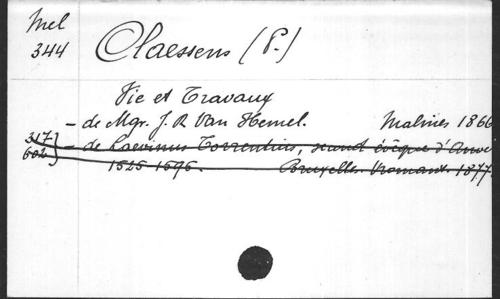 Mel
344
Claessens (P.)
Vie et Travaux
- de Mgr. J. R Van Hemel. Malines 1866
317 } - de Laevinus Torrentius, second évêque d'Anve
602 } 1525-1595. Bruxelles. Vromant. 1877.